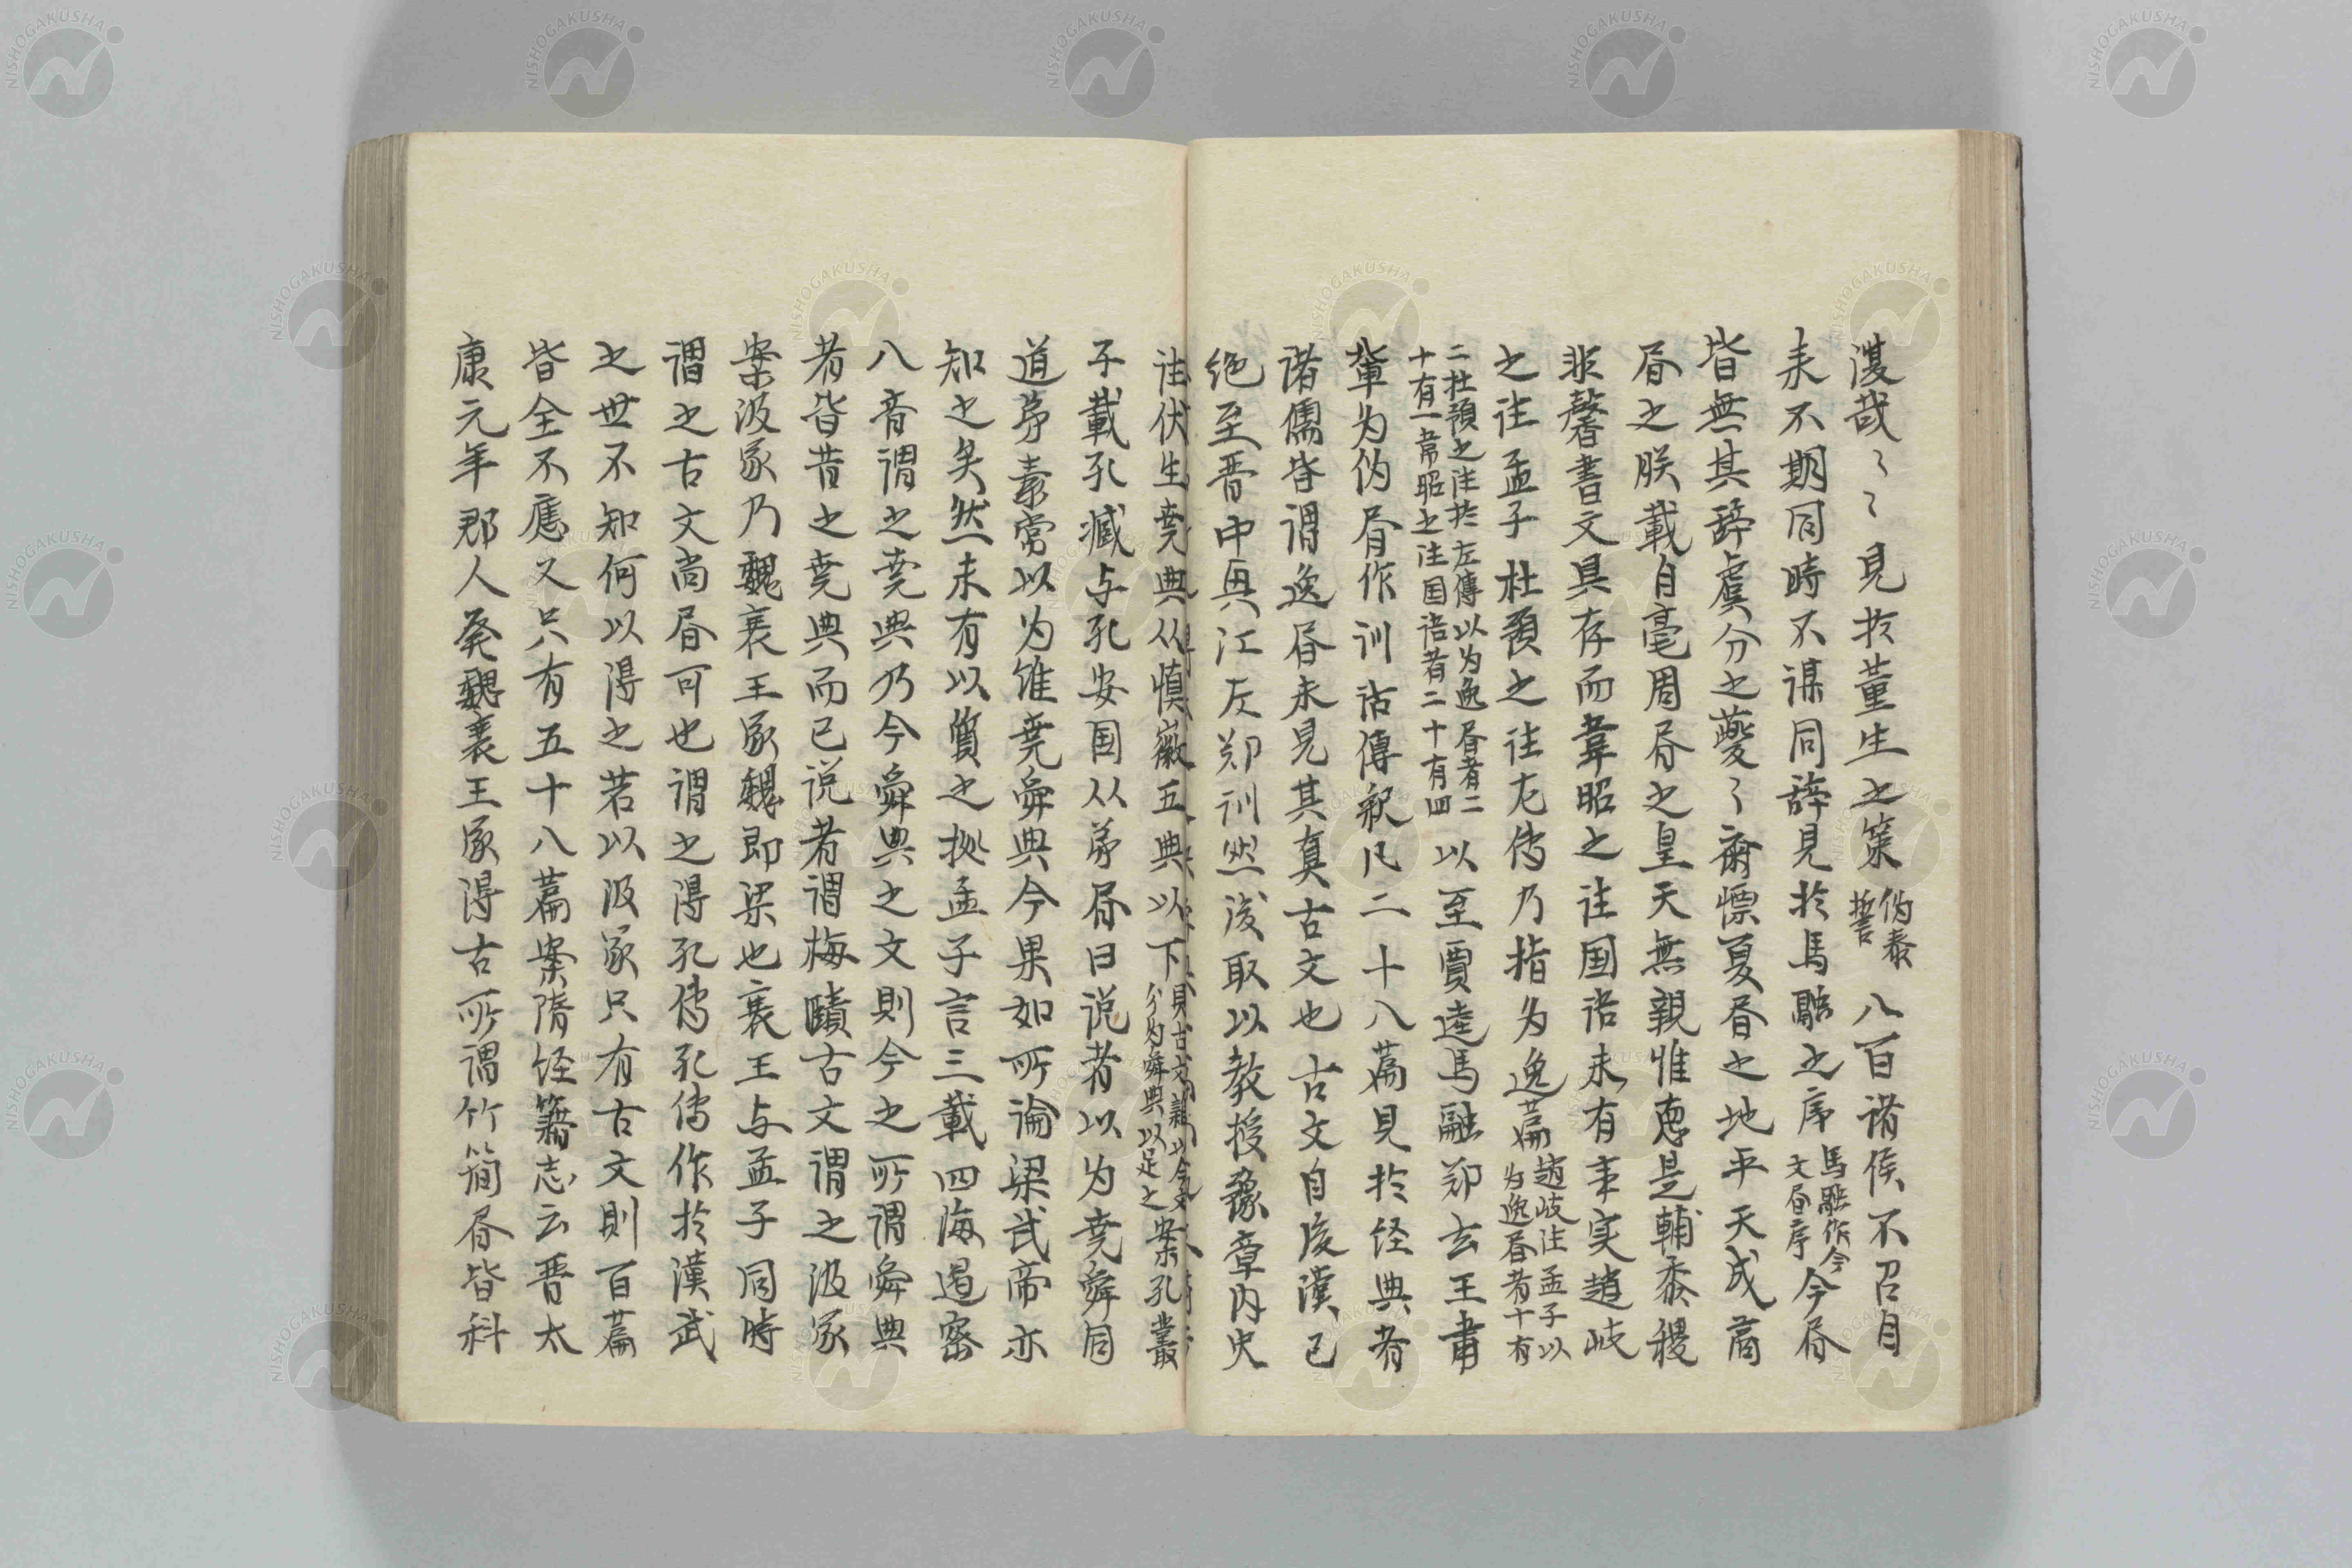 復哉〻〻見於董生之策偽泰誓八百諸侯不召自
来不期同時不謀同辞見於馬融之序馬融作今文㫪序今㫪
皆無其辞虞分之夔〻斎慄夏㫪之地平天成商
㫪之朕載自亳周㫪之皇天無親惟惠是輔黍稷
非馨書文具存而韋昭之註国語未有事実趙岐
之註孟子杜預之註左傳乃指為逸篇趙岐注孟子以為逸㫪者十有
二杜預之注於左傳以為逸㫪者二十有一韋昭之注国語者二十有四以至賈逵馬融郑玄王粛
輩为伪㫪作训詁傳釈凡二十八篇見於経典者
諸儒皆謂逸㫪未見其真古文也古文自後漢已
绝至晋中興江左郑训然後取以教授豫章内史
註伏生尭典从慎徽五典以下見古文雖以今文分为舜典以足之案孔叢
子載孔臧与孔安国从弟㫪曰説者以为尭舜同
道弟素常以为雖尭舜典今果如所論梁武帝亦
知之矣然未有以質之拠孟子言三載四海遏密
八音謂之尭典乃今舜典之文則今之所謂舜典
者皆昔之尭典而已説者謂梅賾古文謂之汲冢
案汲冢乃魏襄王冢魏即梁也襄王与孟子同時
謂之古文尚㫪可也謂之得孔傳孔傳作於漢武
之世不知何以得之若以汲冢只有古文則百篇
皆全不應又只有五十八篇案隋経籍志云晋太
康元年郡人発魏襄王冢得古所謂竹簡㫪皆科
NISHOGAKUSHA